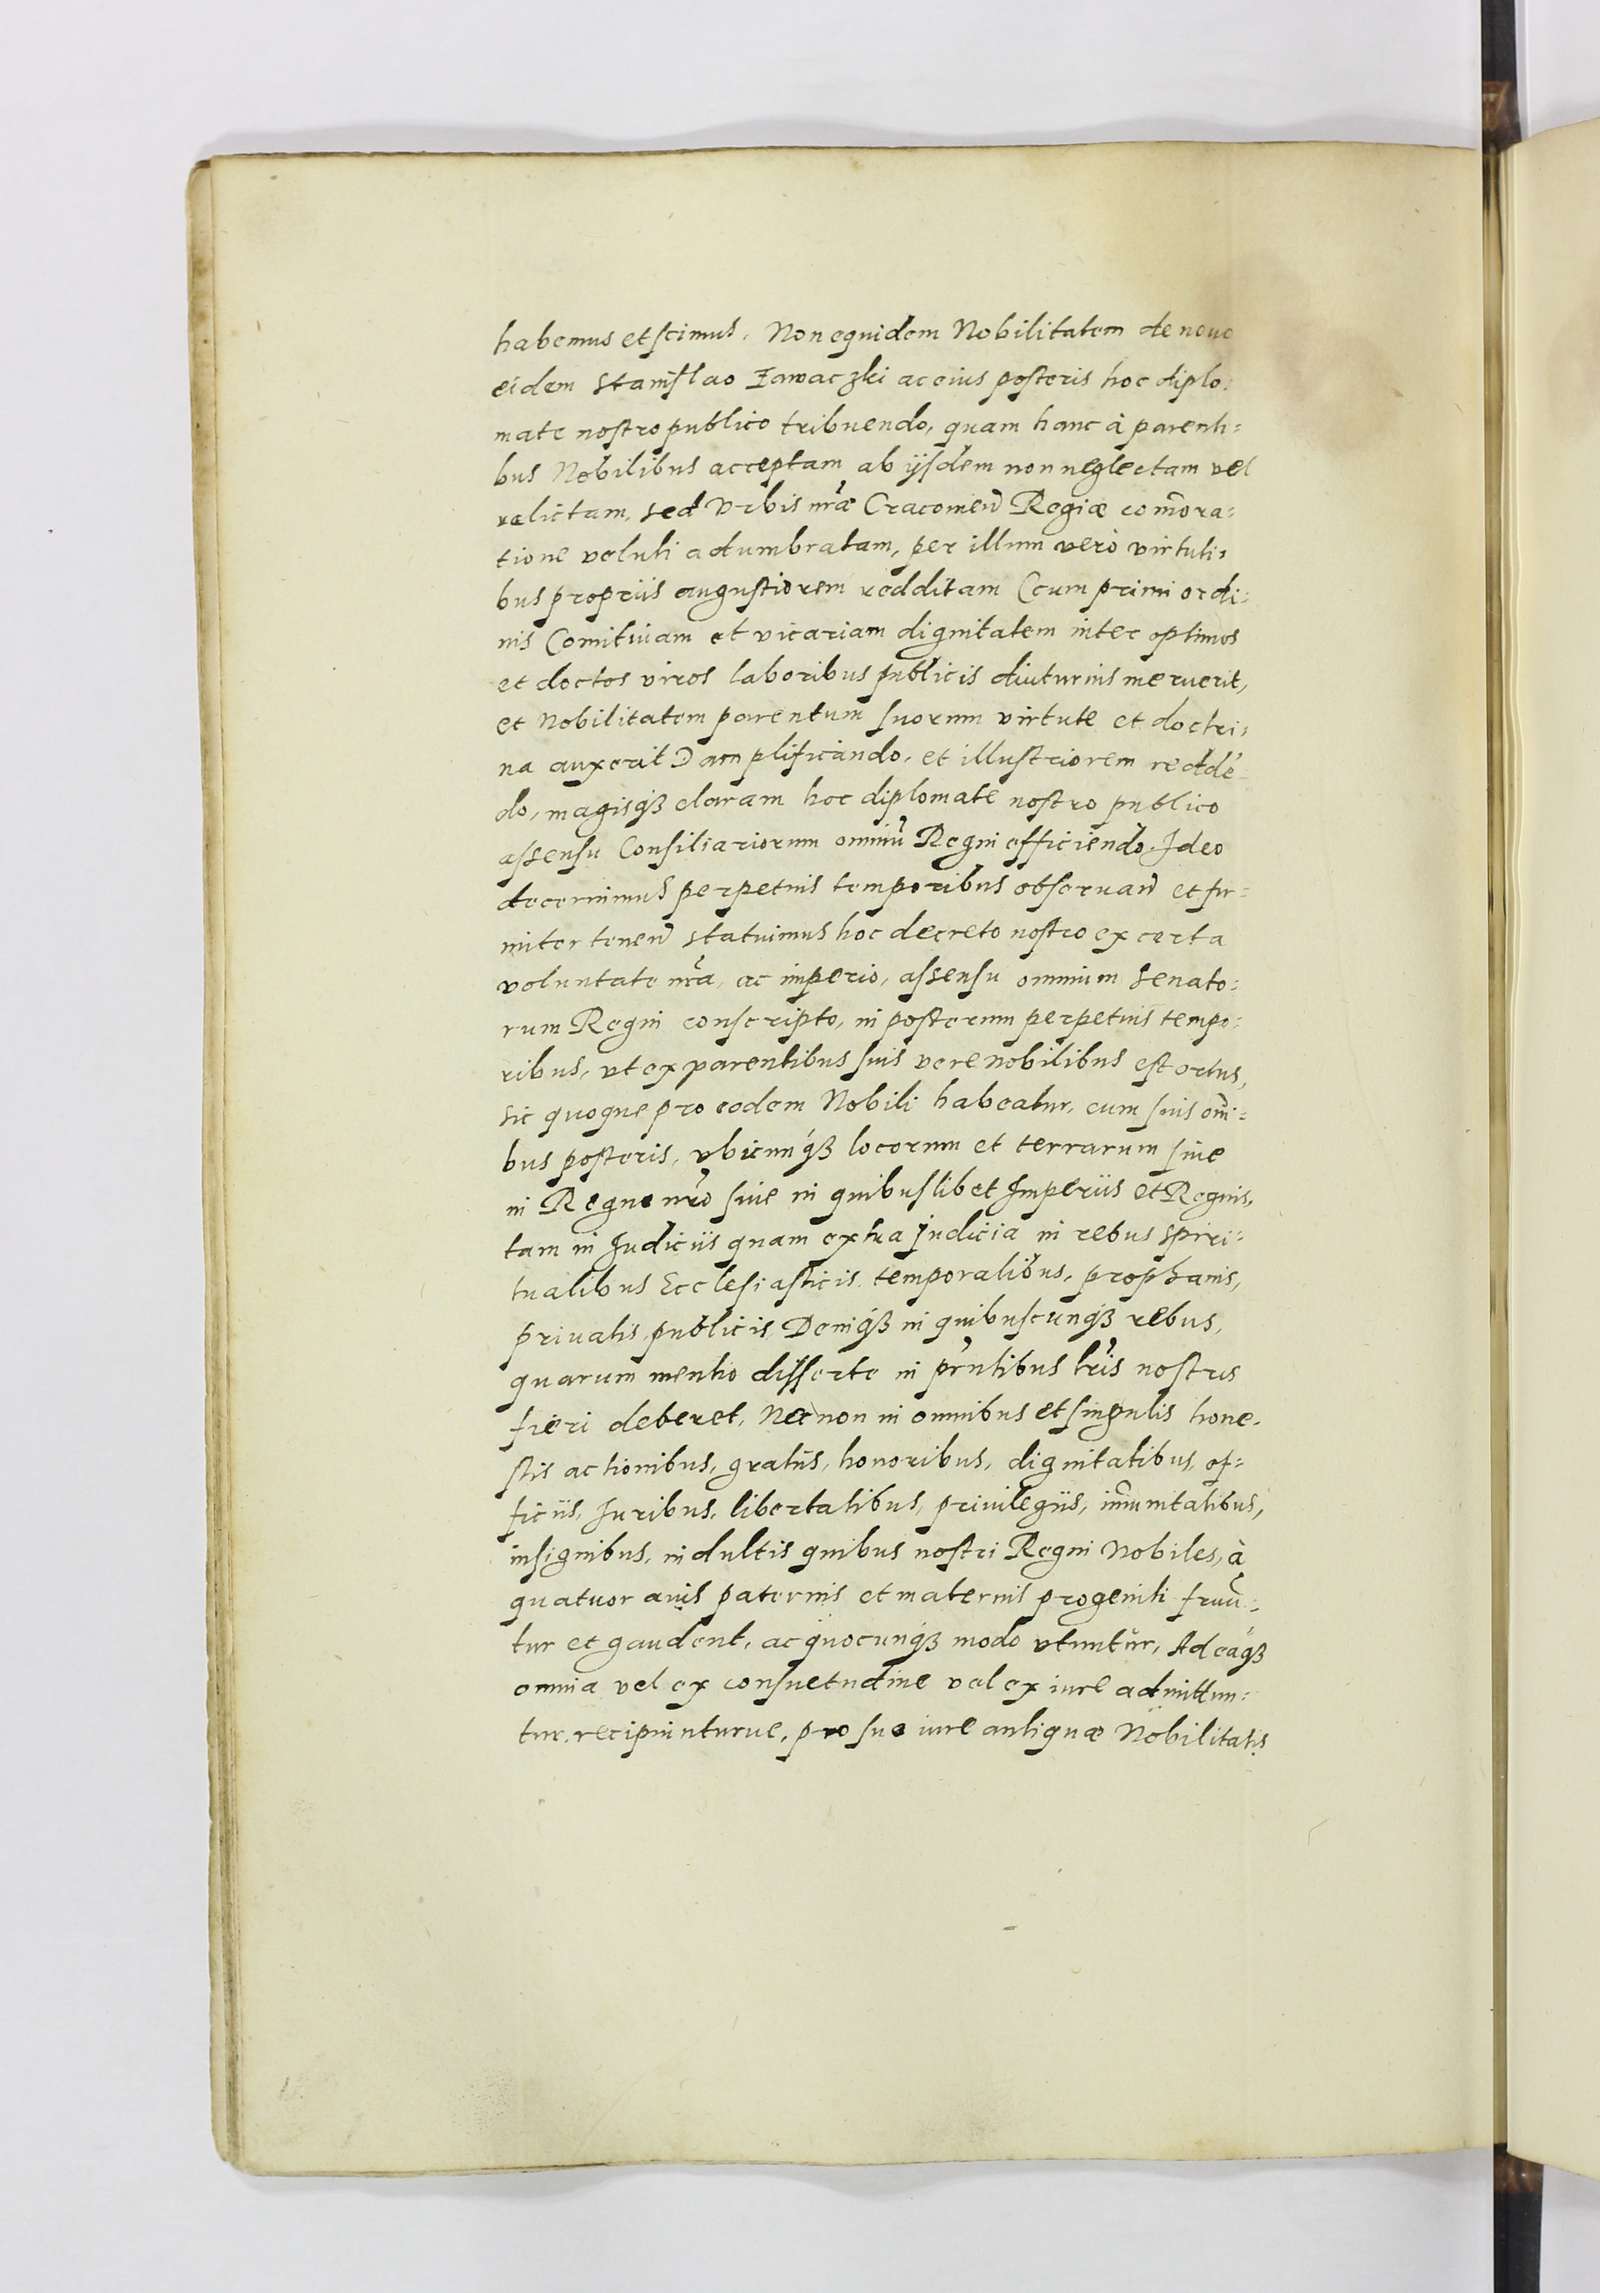 habemus et scimus. Non equidem Nobilitatem de novo
eidem Stanislao Zawaczki ac eius posteris hoc diplo:
mate nostro publico tribuendo, quam hanc à parenti:
bus Nobilibus acceptam ab ijsdem non neglectam vel
relictam, sed Vrbis nr̃æ Cracouieñ Regiæ com̃ora:
tione veluti adumbratam, per illum verò virtuti:
bus propriis augustiorem redditam (cum primi ordi:
nis Comitiuam et vicariam dignitatem inter optimos
et doctos viros laboribus publicis diuturnis meruerit,
et Nobilitatem parentum suorum virtute et doctri:
na auxerit) amplificando, et illustriorem reddẽ:
do, magisq́ꝫ claram hoc diplomate nostro publico
assensu Consiliariorum omniũ Regni efficiendo. Ideo
decernimus perpetuis temporibus obseruañ et fir:
miter teneñ statuimus hoc decreto nostro ex certa
voluntate nr̃a, ac imperio, assensu omnium Senato:
rum Regni conscripto, in posterum perpetuis tempo:
ribus, vt ex parentibus suis vere nobilibus est ortus,
sic quoque pro eodem Nobili habeatur, cum suis om̃i:
bus posteris, vbicunq́ꝫ locorum et terrarum siue
in Regno nr̃o siue in quibuslibet Imperiis et Regnis,
tam in Judiciis quam extra Judicia in rebus spiri:
tualibus Ecclesiasticis, temporalibus, prophanis,
priuatis, publicis, Deniq́ꝫ in quibuscunq́ꝫ rebus,
quarum mentio disserte in pr̃ntibus lr̃is nostris
fieri deberet, Nec non in omnibus et singulis hone:
stis actionibus, gratiis, honoribus, dignitatibus, of:
ficiis, Juribus, libertatibus, priuilegiis, im̃unitatibus,
insignibus, indultis quibus nostri Regni Nobiles, à
quatuor auis paternis et maternis progeniti fruũ:
tur et gaudent, ac quocunq́ꝫ modo vtuntur, Ad eaq́ꝫ
omnia vel ex consuetudine vel ex iure admittun:
tur, recipiunturue, pro suo iure antiquæ Nobilitatis